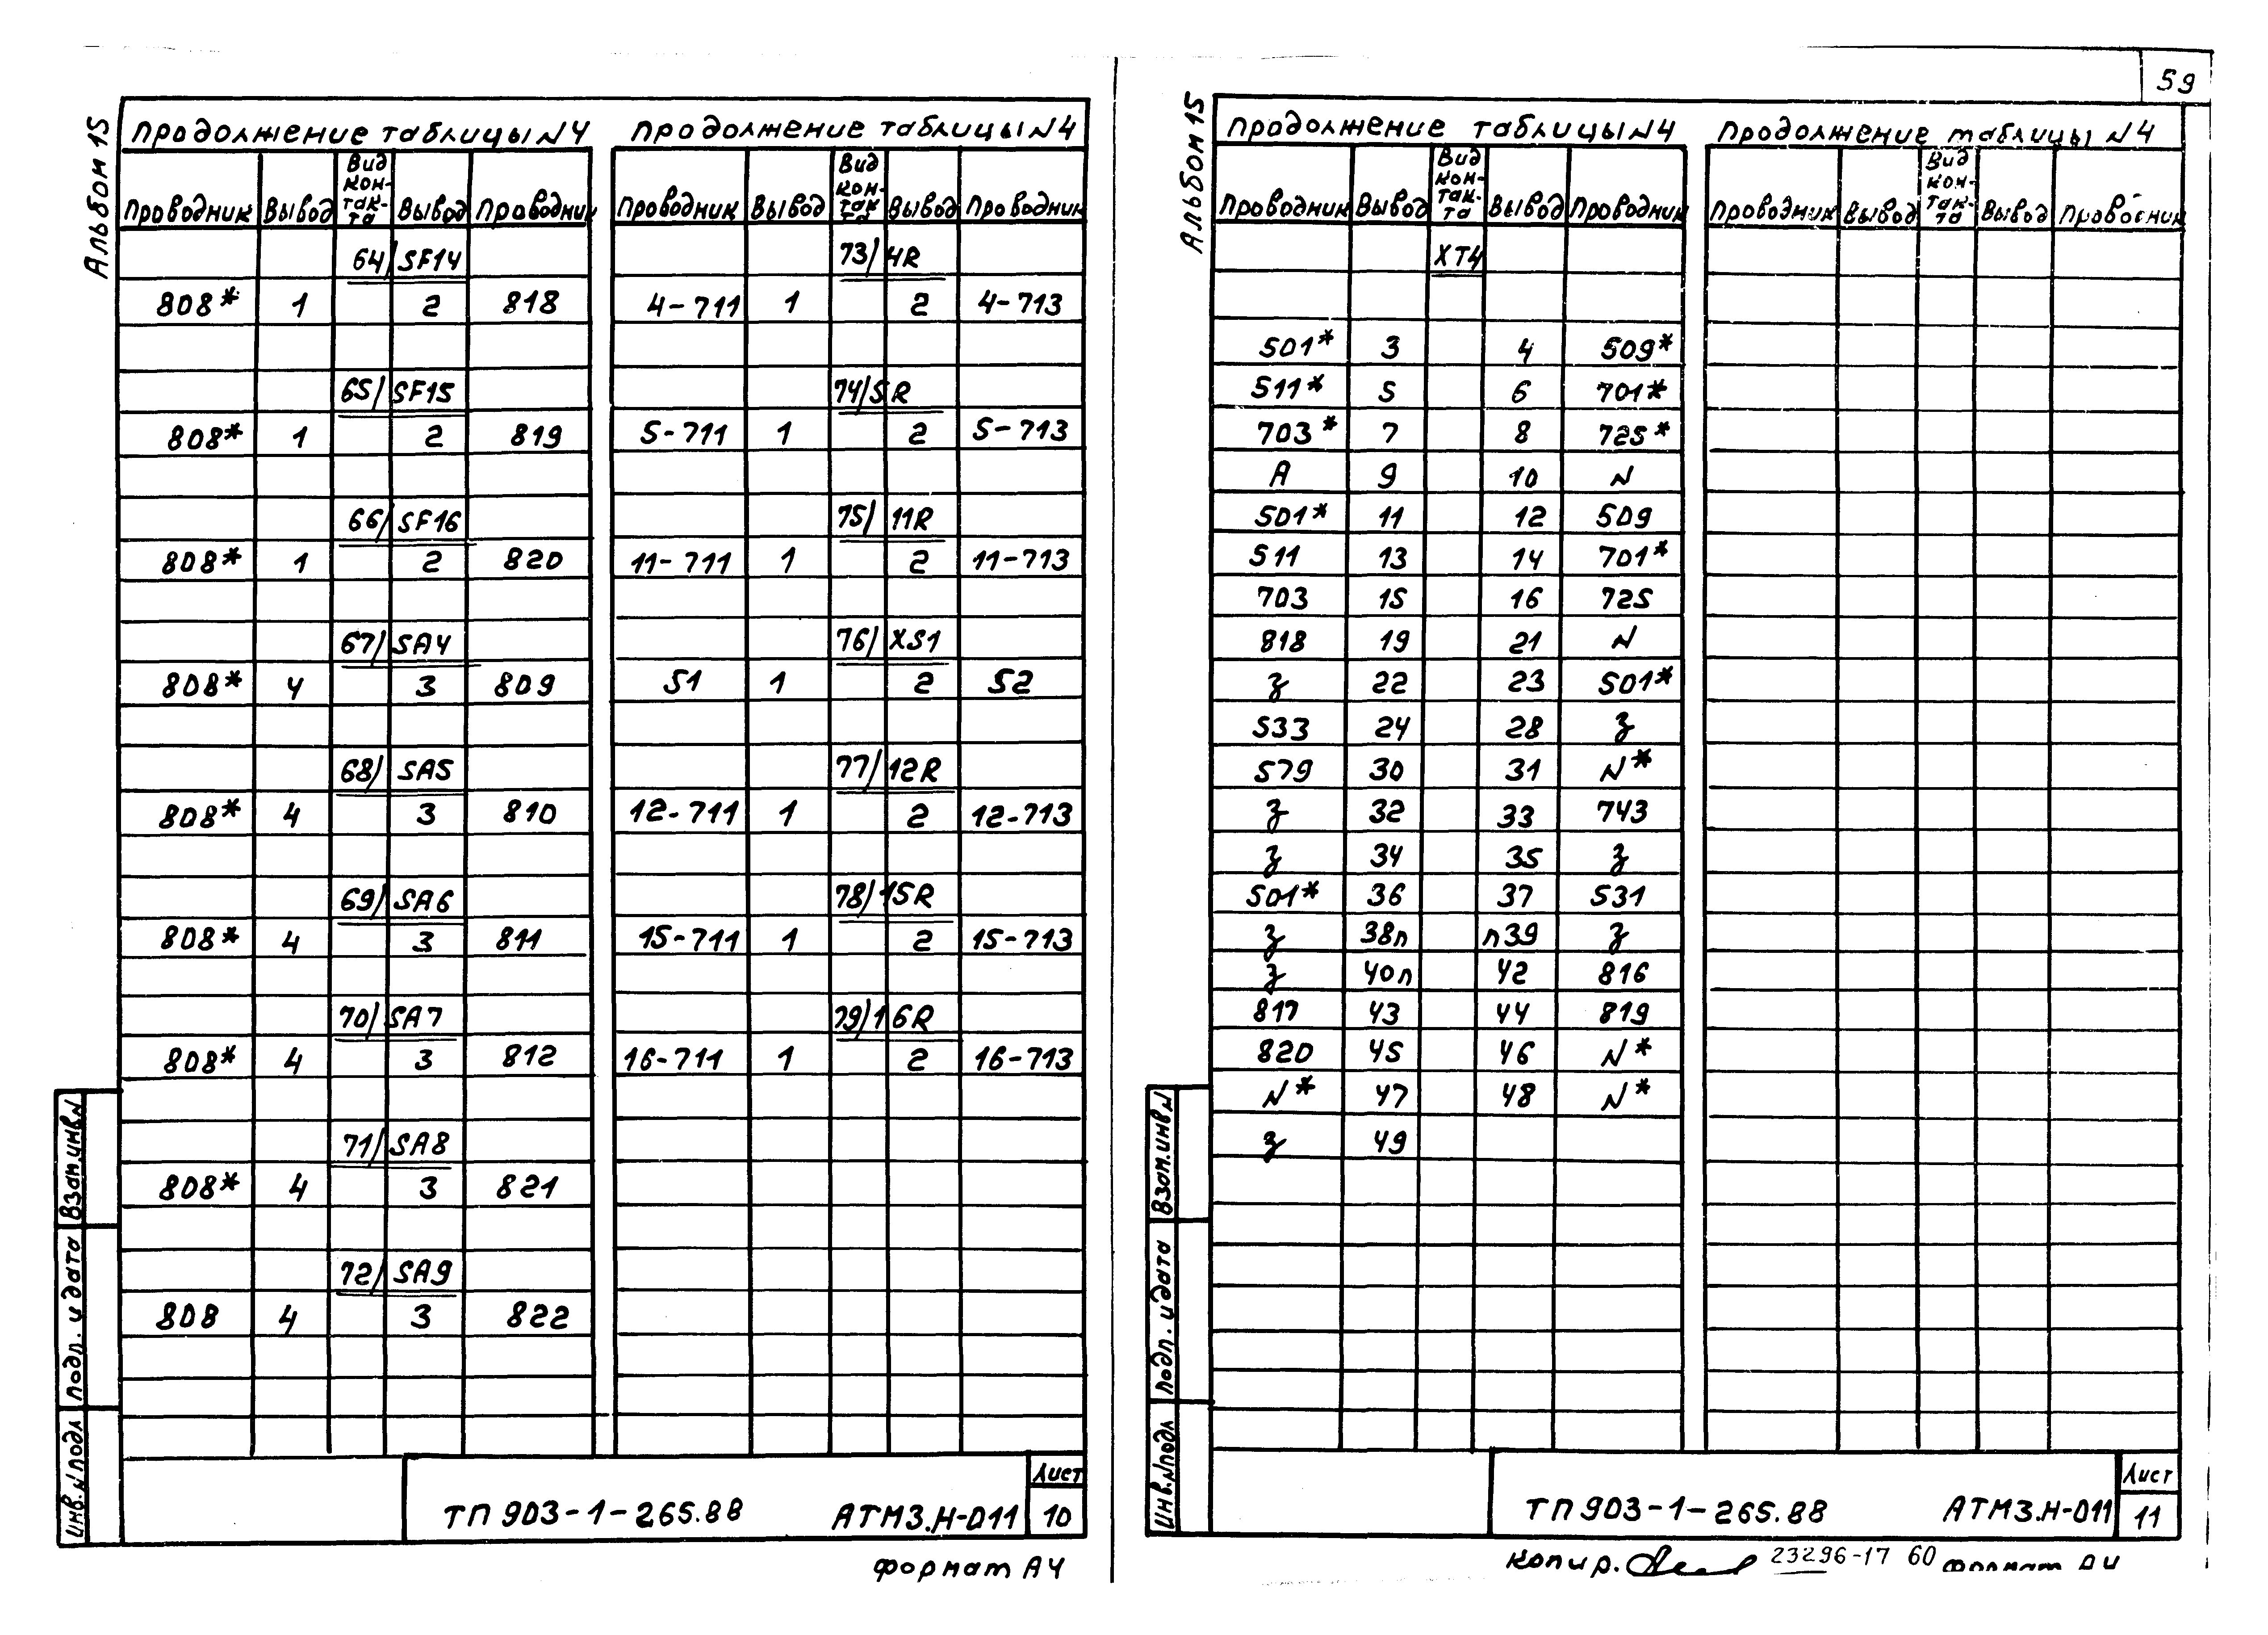 59
Альбом 15
Продолжение таблицы N4
Проводник Вывод Вид контакта Вывод Проводник
64/SF14
808* 1 2 818
65/SF15
808* 1 2 819
66/SF16
808* 1 2 820
67/SA4
808* 4 3 809
68/SA5
808* 4 3 810
69/SA6
808* 4 3 811
70/SA7
808* 4 3 812
71/SA8
808* 4 3 821
72/SA9
808 4 3 822
Продолжение таблицы N4
Проводник Вывод Вид контакта Вывод Проводник
73/4R
4-711 1 2 4-713
74/5R
5-711 1 2 5-713
75/11R
11-711 1 2 11-713
76/XS1
51 1 2 52
77/12R
12-711 1 2 12-713
78/15R
15-711 1 2 15-713
79/16R
16-711 1 2 16-713
Взам.инв.N
Подп. и дата
Инв.N подл
ТП 903-1-265.88 АТМ3.Н-011
Лист
10
Формат А4
Альбом 15
Продолжение таблицы N4
Проводник Вывод Вид контакта Вывод Проводник
XT4
501* 3 4 509*
511* 5 6 701*
703* 7 8 725*
А 9 10 N
501* 11 12 509
511 13 14 701*
703 15 16 725
818 19 21 N
З 22 23 501*
533 24 28 З
579 30 31 N*
З 32 33 743
З 34 35 З
501* 36 37 531
З 38п п39 З
З 40п 42 816
817 43 44 819
820 45 46 N*
N* 47 48 N*
З 49
Продолжение таблицы N4
Проводник Вывод Вид контакта Вывод Проводник
Взам.инв.N
Подп. и дата
Инв.N подл
ТП 903-1-265.88 АТМ3.Н-011
Лист
11
Копир. 23296-17 60 Формат А4